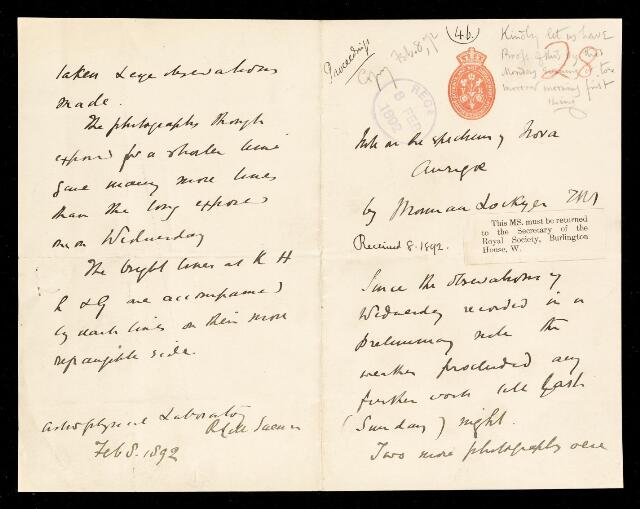 (46)
Proceedings
Feb. 8, 92
Kindly let us have
Proof of this by
Monday evening or to
morrow morning first
thing
28
RECD
8 FEB
1892
Note on the spectrum of Nova
Aurigæ
by Norman Lockyer FRS
This MS. must be returned
to the Secretary of the
Royal Society, Burlington
House, W.
Received 8. 1892.
Since the observations of
Wednesday recorded in a
preliminary note the
weather precluded any
further work till last
(Sunday) night.
Two more photographs were
taken & eye observations
made.
The photographs though
exposed for a shorter time
gave many more lines
than the long exposed
one on Wednesday
The bright lines at K H
h & G are accompanied
by dark lines on their more
refrangible side.
Astrophysical Laboratory
Feb 8. 1892